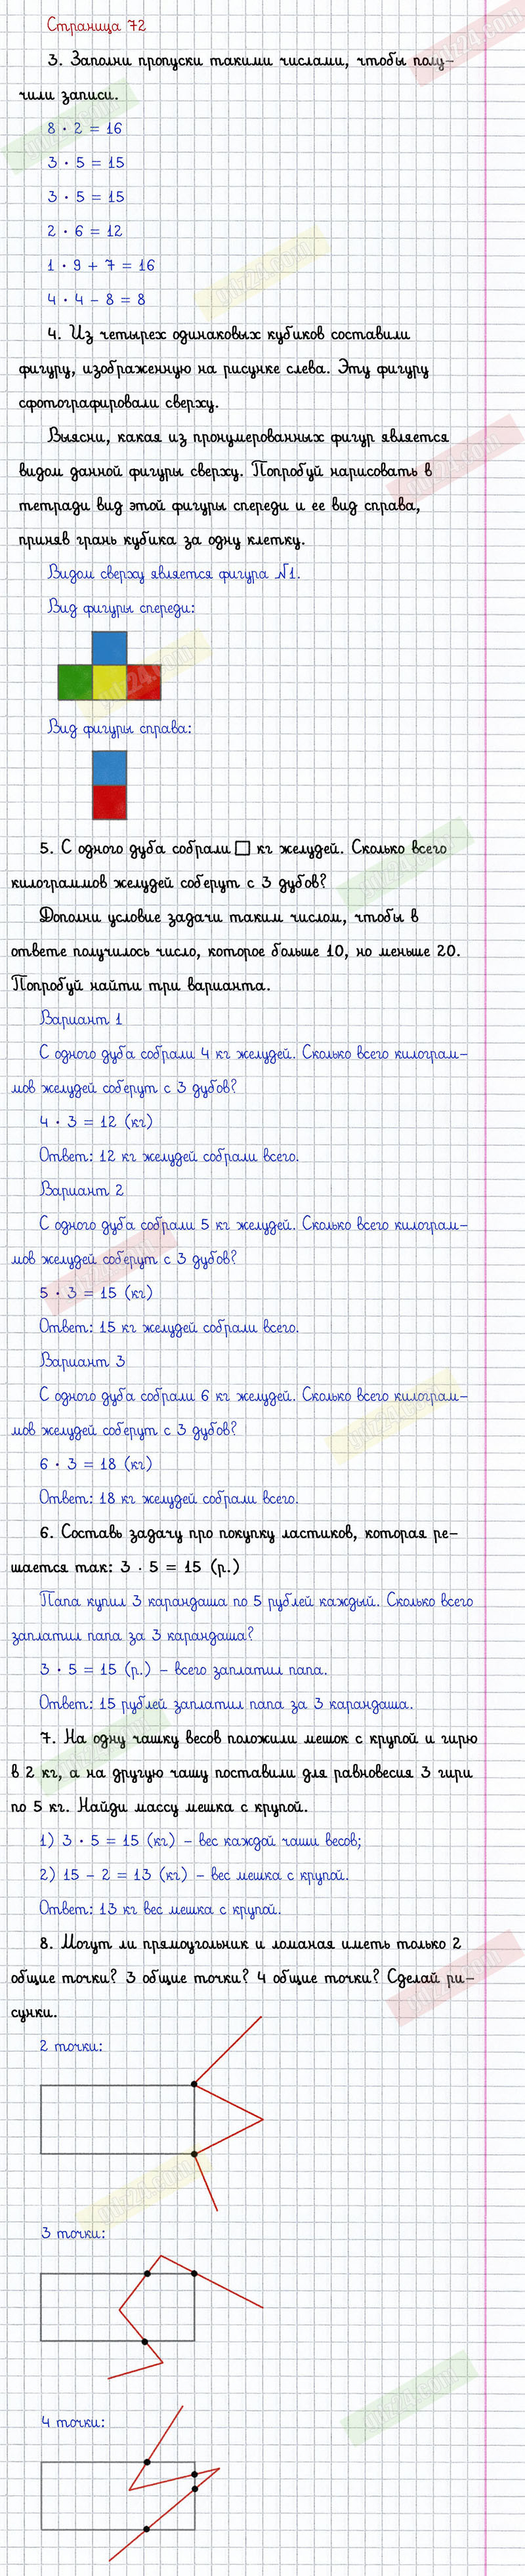 Страница 72
3. Заполни пропуски такими числами, чтобы полу-
чили записи.
8 · 2 = 16
3 · 5 = 15
3 · 5 = 15
2 · 6 = 12
1 · 9 + 7 = 16
4 · 4 – 8 = 8
4. Из четырех одинаковых кубиков составили
фигуру, изображенную на рисунке слева. Эту фигуру
сфотографировали сверху.
Выясни, какая из пронумерованных фигур является
видом данной фигуры сверху. Попробуй нарисовать в
тетради вид этой фигуры спереди и ее вид справа,
приняв грань кубика за одну клетку.
Видом сверху является фигура №1.
Вид фигуры спереди:
Вид фигуры справа:
5. С одного дуба собрали □ кг желудей. Сколько всего
килограммов желудей соберут с 3 дубов?
Дополни условие задачи таким числом, чтобы в
ответе получилось число, которое больше 10, но меньше 20.
Попробуй найти три варианта.
Вариант 1
С одного дуба собрали 4 кг желудей. Сколько всего килограм-
мов желудей соберут с 3 дубов?
4 · 3 = 12 (кг)
Ответ: 12 кг желудей собрали всего.
Вариант 2
С одного дуба собрали 5 кг желудей. Сколько всего килограм-
мов желудей соберут с 3 дубов?
5 · 3 = 15 (кг)
Ответ: 15 кг желудей собрали всего.
Вариант 3
С одного дуба собрали 6 кг желудей. Сколько всего килограм-
мов желудей соберут с 3 дубов?
6 · 3 = 18 (кг)
Ответ: 18 кг желудей собрали всего.
6. Составь задачу про покупку ластиков, которая ре-
шается так: 3 · 5 = 15 (р.)
Папа купил 3 карандаша по 5 рублей каждый. Сколько всего
заплатил папа за 3 карандаша?
3 · 5 = 15 (р.) – всего заплатил папа.
Ответ: 15 рублей заплатил папа за 3 карандаша.
7. На одну чашку весов положили мешок с крупой и гирю
в 2 кг, а на другую чашу поставили для равновесия 3 гири
по 5 кг. Найди массу мешка с крупой.
1) 3 · 5 = 15 (кг) – вес каждой чаши весов;
2) 15 – 2 = 13 (кг) – вес мешка с крупой.
Ответ: 13 кг вес мешка с крупой.
8. Могут ли прямоугольник и ломаная иметь только 2
общие точки? 3 общие точки? 4 общие точки? Сделай ри-
сунки.
2 точки:
3 точки:
4 точки: